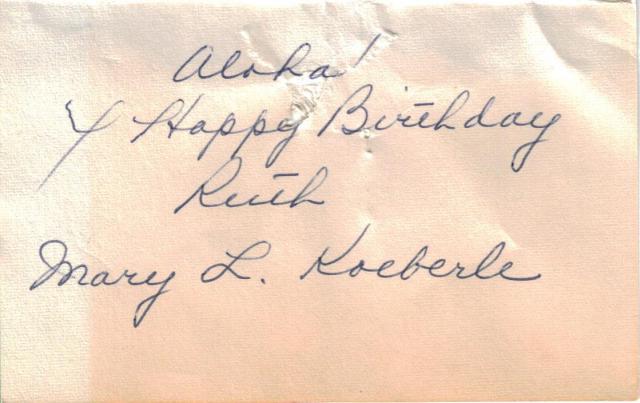 Aloha!
& Happy Birthday
Ruth
Mary L. Koeberle